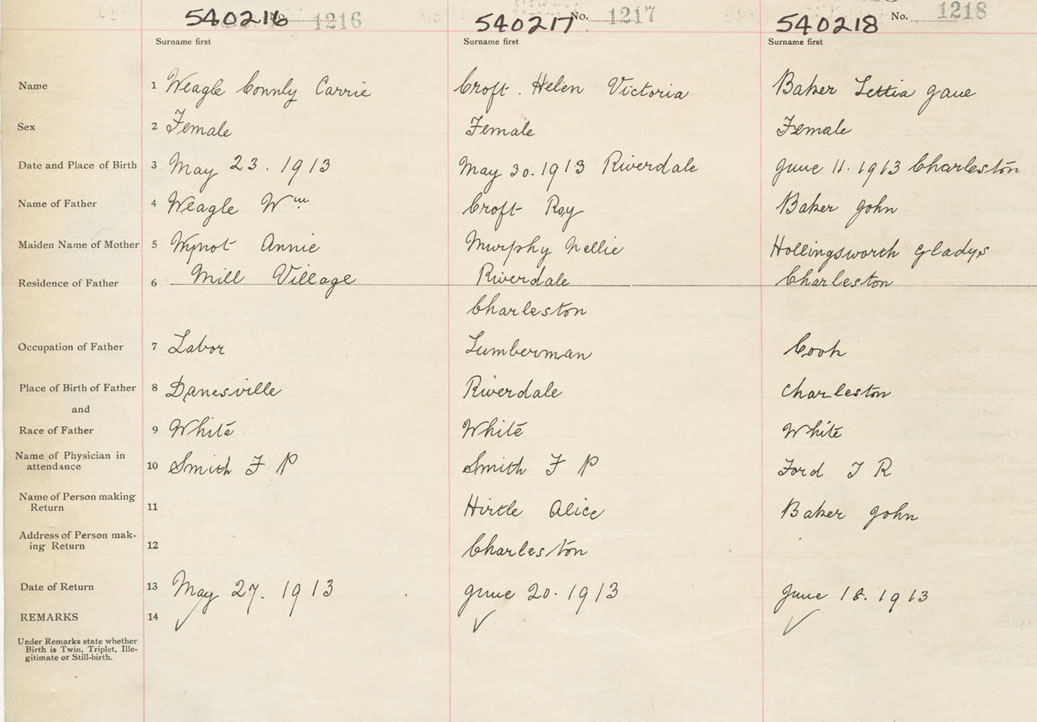 540216 No. 1216 540217 No. 1217 540218 No. 1218
Surname first Surname first Surname first
Name 1 Weagle Connly Carrie Croft. Helen Victoria Baker Lettia Jane
Sex 2 Female Female Female
Date and Place of Birth 3 May 23. 1913 May 30. 1913 Riverdale June 11. 1913 Charleston
Name of Father 4 Weagle Wm Croft Ray Baker John
Maiden Name of Mother 5 Wynot Annie Murphy Nellie Hollingsworth Gladys
Residence of Father 6 Mill Village Riverdale Charleston
Charleston
Occupation of Father 7 Labor Lumberman Cook
Place of Birth of Father 8 Danesville Riverdale Charleston
and
Race of Father 9 White White White
Name of Physician in
attendance 10 Smith F P Smith F P Ford T R
Name of Person making
Return 11 Hirtle Alice Baker John
Address of Person mak-
ing Return 12 Charleston
Date of Return 13 May 27. 1913 June 20. 1913 June 18. 1913
REMARKS 14
Under Remarks state whether
Birth is Twin, Triplet, Ille-
gitimate or Still-birth.